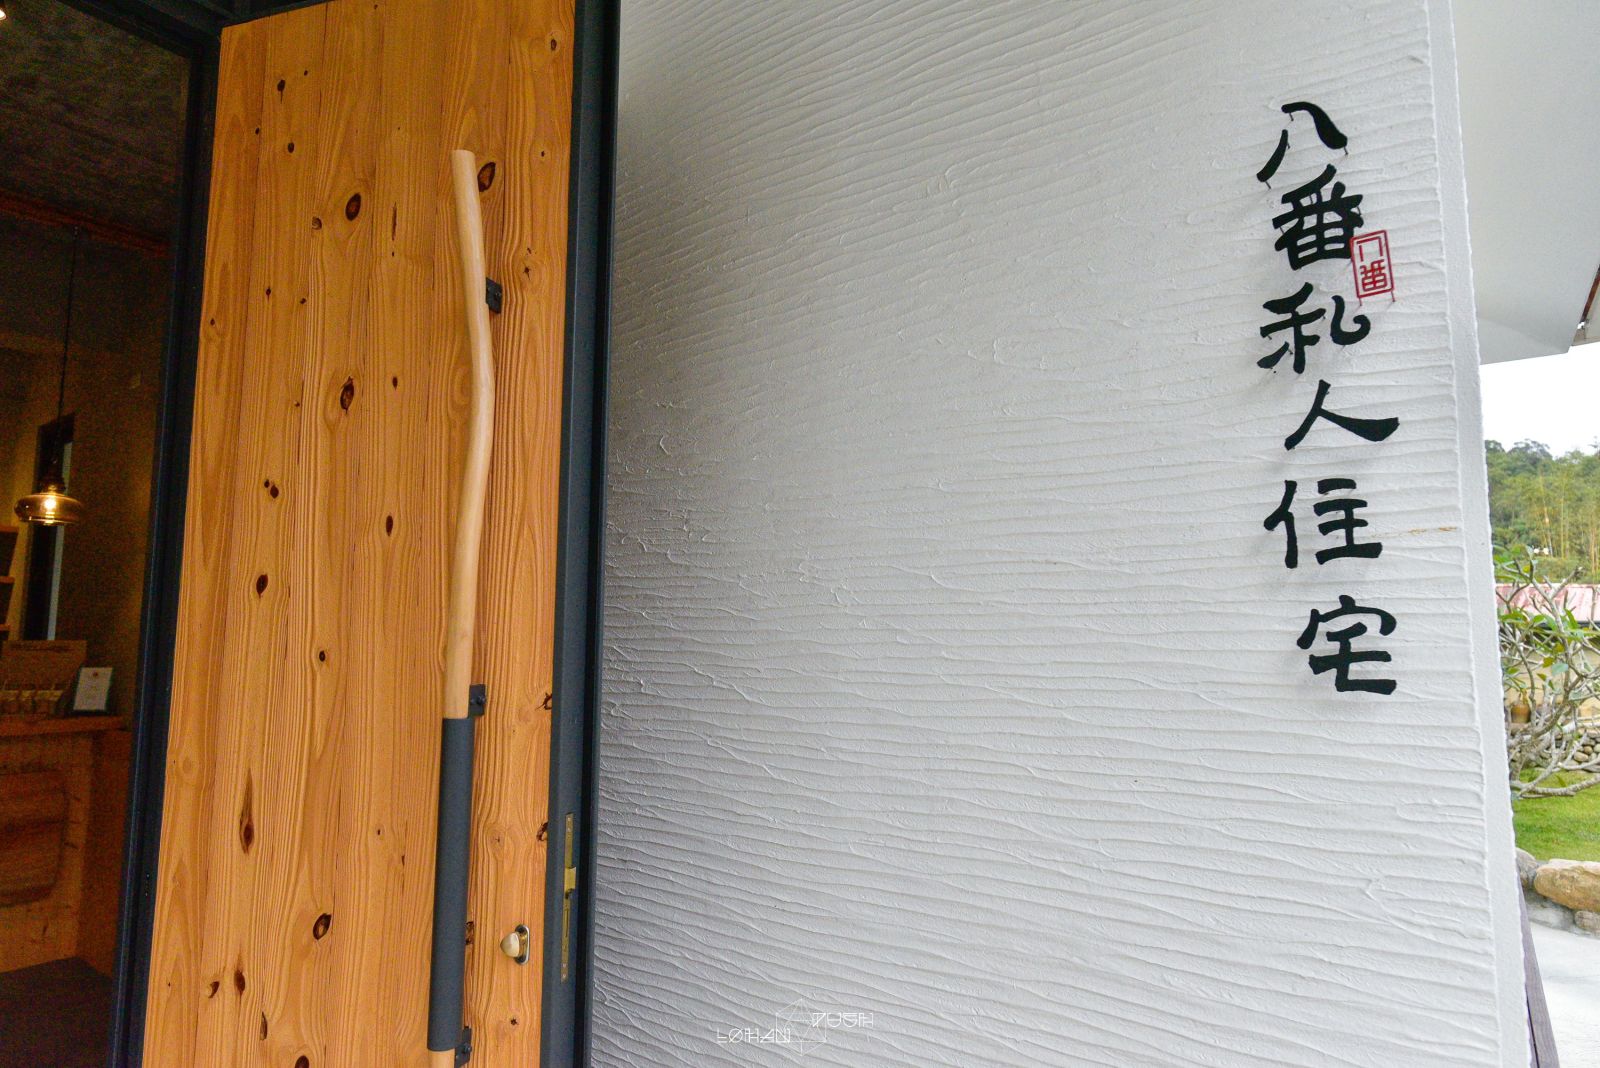 八番私人住宅
八番
LOHAN
PUSH